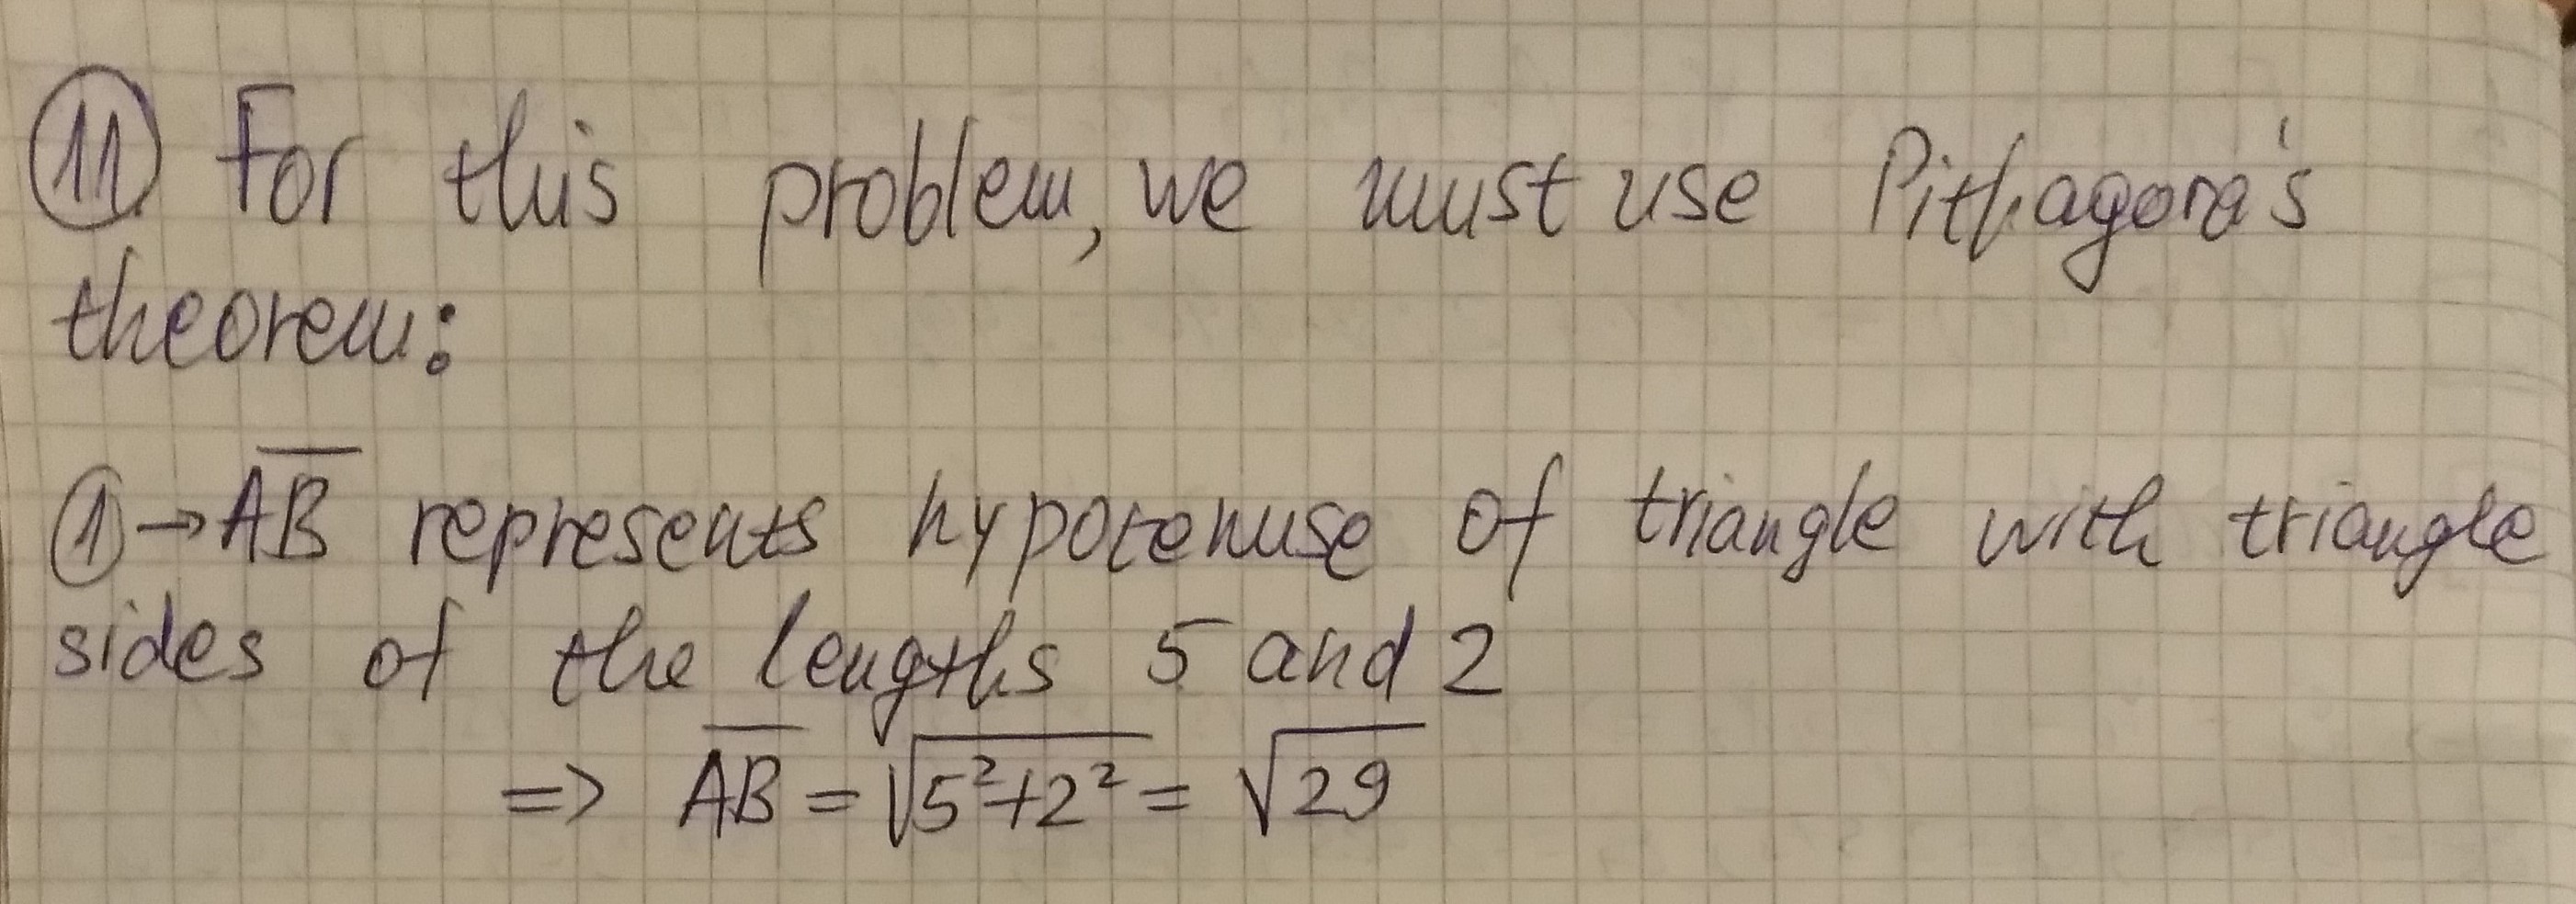 ⑪ For this problem, we must use Pithagora's
theorem:
① → A̅B̅ represents hypotenuse of triangle with triangle
sides of the lengths 5 and 2
=> A̅B̅ = √(5²+2²) = √29